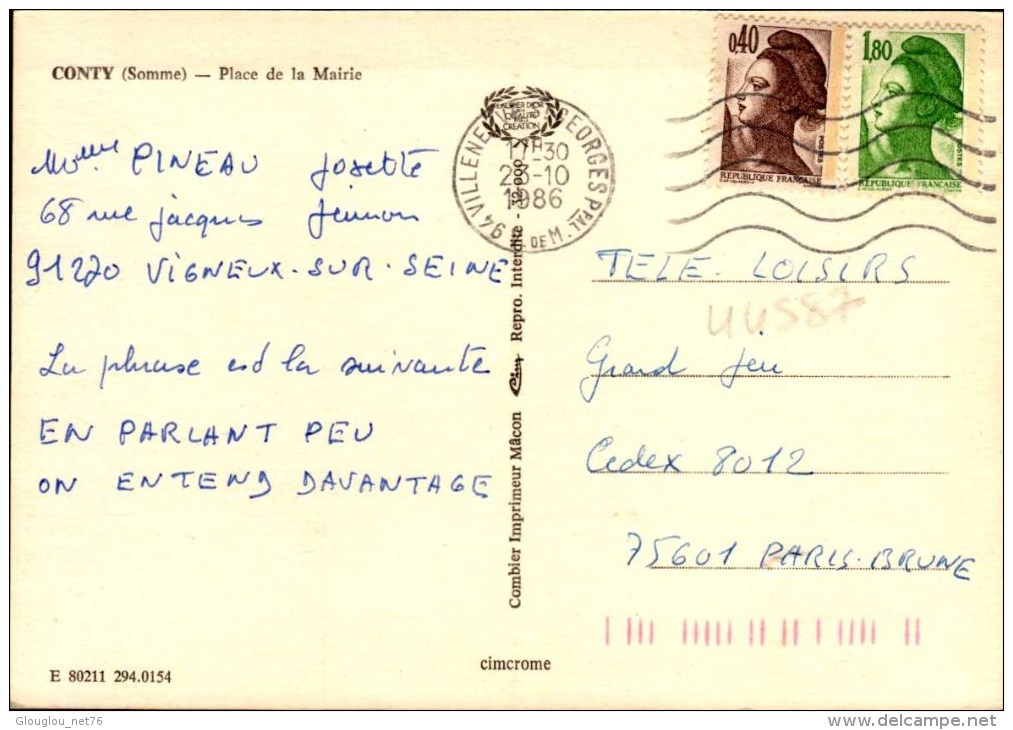 CONTY (Somme) — Place de la Mairie
Mme PINEAU Josette
68 rue Jacques
91270 VIGNEUX-SUR-SEINE
La phrase est la suivante
EN PARLANT PEU
ON ENTEND DAVANTAGE
E 80211 294.0154
Combier Imprimeur Mâcon Cim Repro. Interdite
cimcrome
LAURIER D'OR
QUALITÉ
CRÉATION
94 VILLENEUVE GEORGES PPAL
17H30
10
1986
V. DE M.
0,40
POSTES
REPUBLIQUE FRANÇAISE
1,80
POSTES
REPUBLIQUE FRANÇAISE
TELE. LOISIRS
44587
Grand Jeu
Cedex 8012
75601 PARIS-BRUNE
Glouglou_net76
delcampe.net